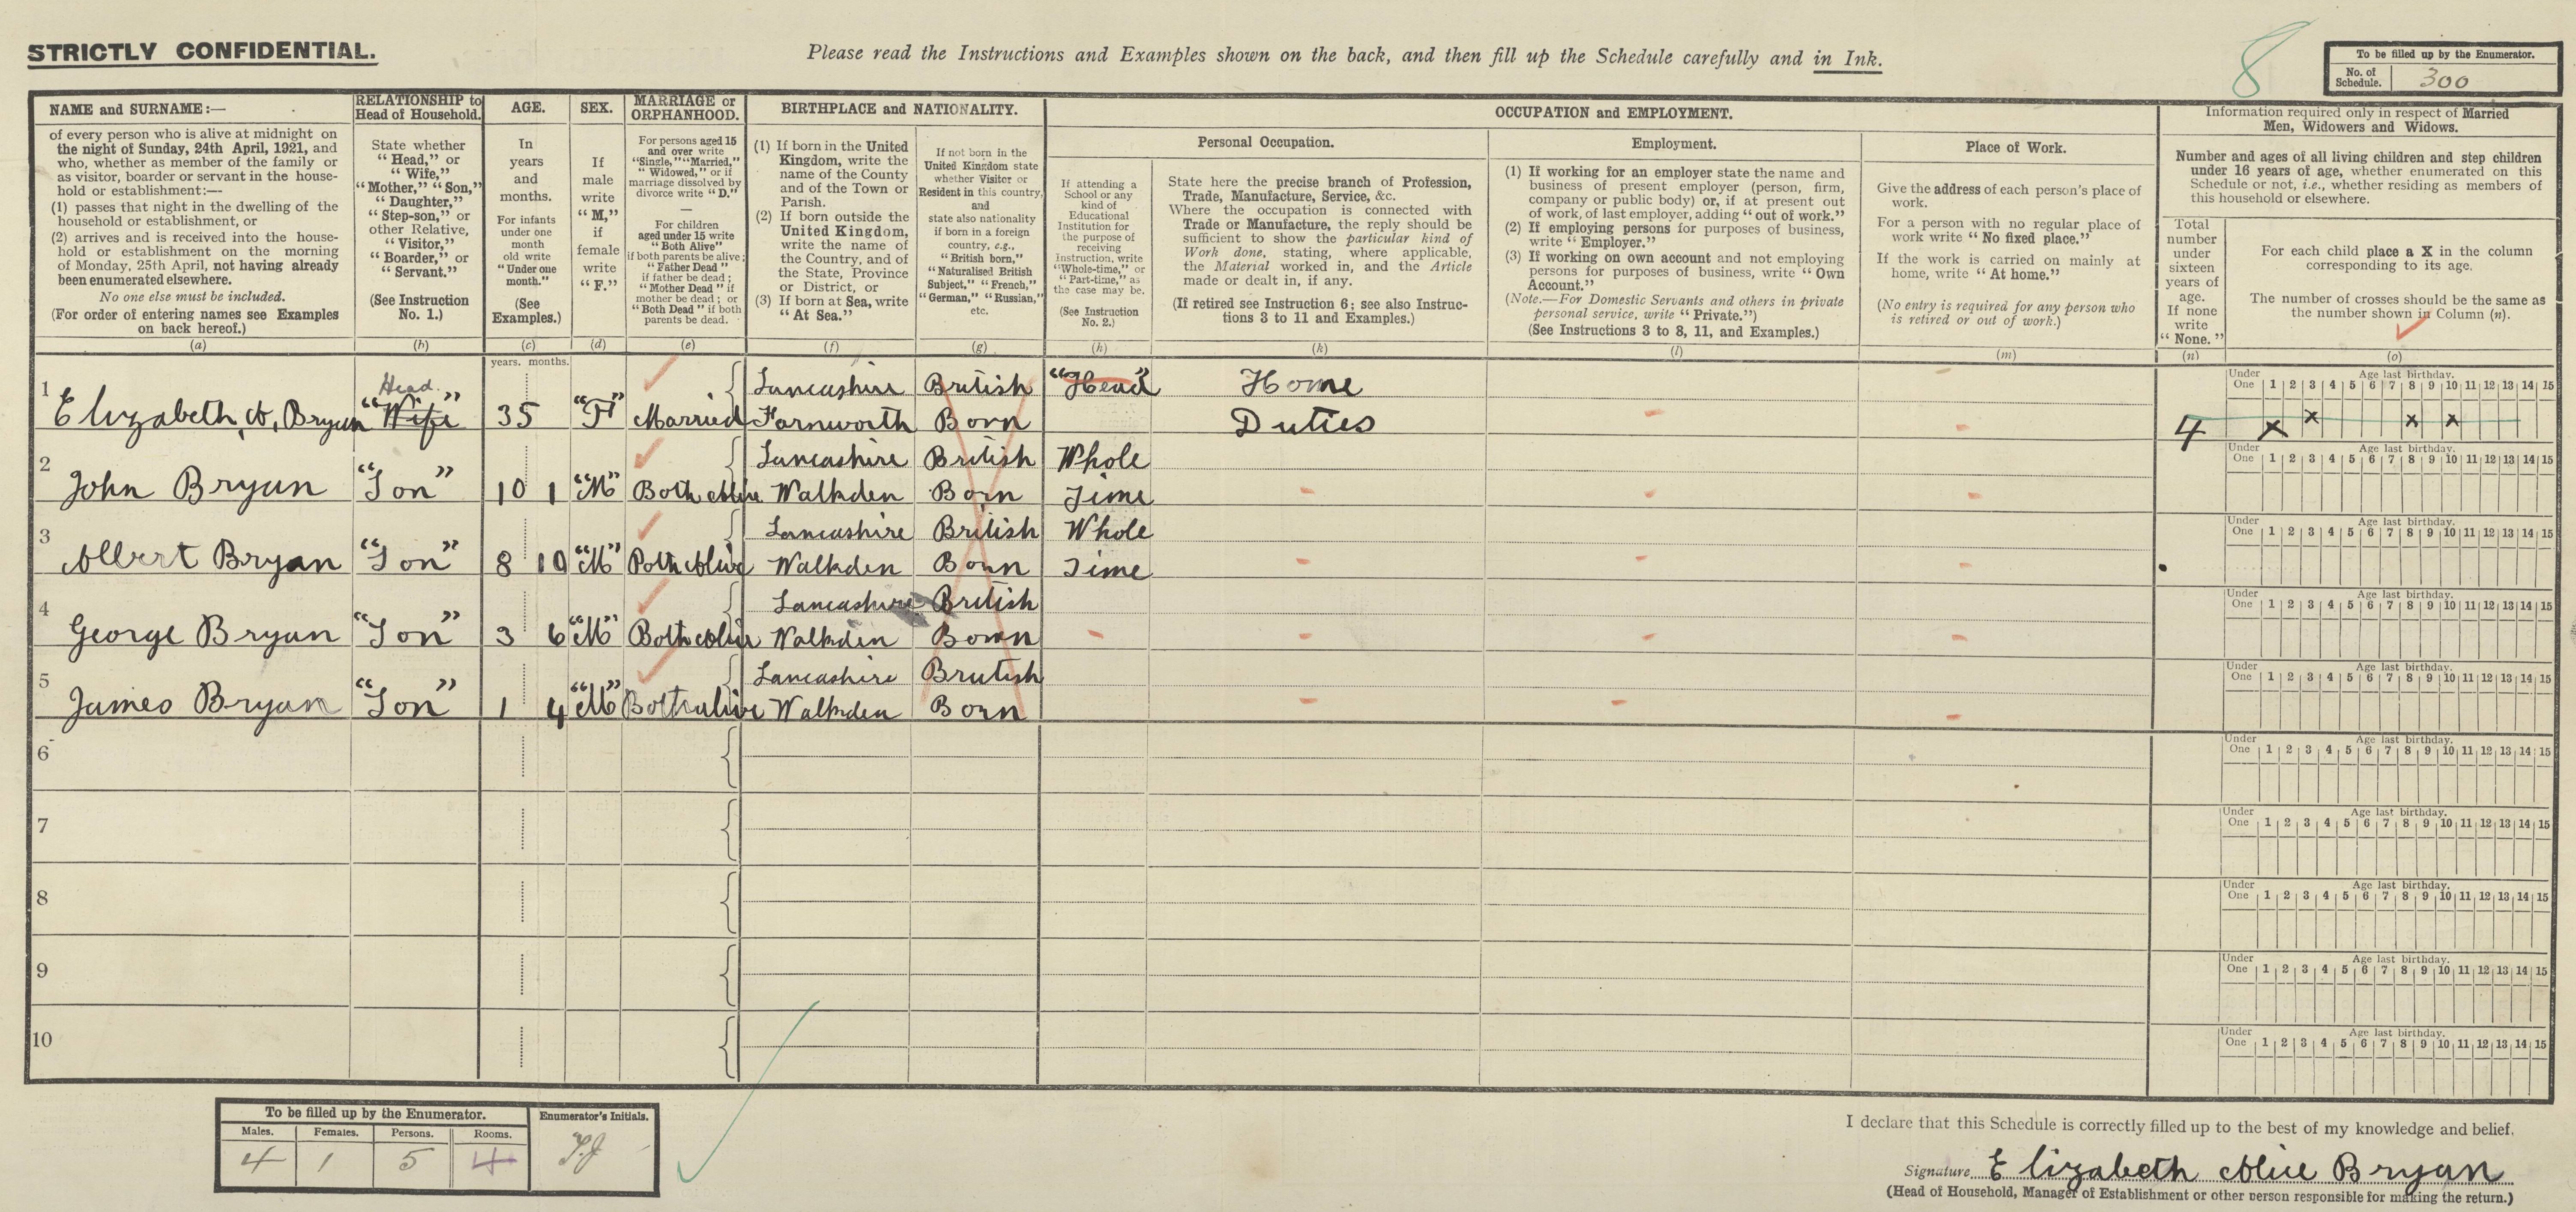 STRICTLY CONFIDENTIAL.
Please read the Instructions and Examples shown on the back, and then fill up the Schedule carefully and in Ink.
8
To be filled up by the Enumerator.
No. of Schedule. 300
NAME and SURNAME:—
of every person who is alive at midnight on
the night of Sunday, 24th April, 1921, and
who, whether as member of the family or
as visitor, boarder or servant in the house-
hold or establishment:—
(1) passes that night in the dwelling of the
household or establishment, or
(2) arrives and is received into the house-
hold or establishment on the morning
of Monday, 25th April, not having already
been enumerated elsewhere.
No one else must be included.
(For order of entering names see Examples
on back hereof.)
(a)
RELATIONSHIP to
Head of Household.
State whether
"Head," or
"Wife,"
"Mother," "Son,"
"Daughter,"
"Step-son," or
other Relative,
"Visitor,"
"Boarder," or
"Servant."
(See Instruction
No. 1.)
(b)
AGE.
In
years
and
months.
For infants
under one
month
old write
"Under one
month."
(See
Examples.)
(c)
SEX.
If
male
write
"M,"
if
female
write
"F."
(d)
MARRIAGE or
ORPHANHOOD.
For persons aged 15
and over write
"Single," "Married,"
"Widowed," or if
marriage dissolved by
divorce write "D."
—
For children
aged under 15 write
"Both Alive"
if both parents be alive;
"Father Dead"
if father be dead;
"Mother Dead" if
mother be dead; or
"Both Dead" if both
parents be dead.
(e)
BIRTHPLACE and NATIONALITY.
(1) If born in the United
Kingdom, write the
name of the County
and of the Town or
Parish.
(2) If born outside the
United Kingdom,
write the name of
the Country, and of
the State, Province
or District, or
(3) If born at Sea, write
"At Sea."
(f)
If not born in the
United Kingdom state
whether Visitor or
Resident in this country,
and
state also nationality
if born in a foreign
country, e.g.,
"British born,"
"Naturalised British
Subject," "French,"
"German," "Russian,"
etc.
(g)
OCCUPATION and EMPLOYMENT.
Personal Occupation.
If attending a
School or any
kind of
Educational
Institution for
the purpose of
receiving
Instruction, write
"Whole-time," or
"Part-time," as
the case may be.
(See Instruction
No. 2.)
(h)
State here the precise branch of Profession,
Trade, Manufacture, Service, &c.
Where the occupation is connected with
Trade or Manufacture, the reply should be
sufficient to show the particular kind of
Work done, stating, where applicable,
the Material worked in, and the Article
made or dealt in, if any.
(If retired see Instruction 6; see also Instruc-
tions 3 to 11 and Examples.)
(k)
Employment.
(1) If working for an employer state the name and
business of present employer (person, firm,
company or public body) or, if at present out
of work, of last employer, adding "out of work."
(2) If employing persons for purposes of business,
write "Employer."
(3) If working on own account and not employing
persons for purposes of business, write "Own
Account."
(Note.—For Domestic Servants and others in private
personal service, write "Private.")
(See Instructions 3 to 8, 11, and Examples.)
(l)
Place of Work.
Give the address of each person's place of
work.
For a person with no regular place of
work write "No fixed place."
If the work is carried on mainly at
home, write "At home."
(No entry is required for any person who
is retired or out of work.)
(m)
Information required only in respect of Married
Men, Widowers and Widows.
Number and ages of all living children and step children
under 16 years of age, whether enumerated on this
Schedule or not, i.e., whether residing as members of
this household or elsewhere.
Total
number
under
sixteen
years of
age.
If none
write
"None."
(n)
For each child place a X in the column
corresponding to its age.
The number of crosses should be the same as
the number shown in Column (n).
(o)
years. months.
1 Elizabeth, A, Bryan Head "Wife" 35 "F" Married Lancashire Farnworth British Born "Head" Home Duties 4 x x x x
Under One 1 2 3 4 5 6 7 8 9 10 11 12 13 14 15 Age last birthday.
2 John Bryan "Son" 10 1 "M" Both Alive Lancashire Walkden British Born Whole Time
Under One 1 2 3 4 5 6 7 8 9 10 11 12 13 14 15 Age last birthday.
3 Albert Bryan "Son" 8 10 "M" Both Alive Lancashire Walkden British Born Whole Time
Under One 1 2 3 4 5 6 7 8 9 10 11 12 13 14 15 Age last birthday.
4 George Bryan "Son" 3 6 "M" Both Alive Lancashire Walkden British Born
Under One 1 2 3 4 5 6 7 8 9 10 11 12 13 14 15 Age last birthday.
5 James Bryan "Son" 1 4 "M" Both alive Lancashire Walkden British Born
Under One 1 2 3 4 5 6 7 8 9 10 11 12 13 14 15 Age last birthday.
6 Under One 1 2 3 4 5 6 7 8 9 10 11 12 13 14 15 Age last birthday.
7 Under One 1 2 3 4 5 6 7 8 9 10 11 12 13 14 15 Age last birthday.
8 Under One 1 2 3 4 5 6 7 8 9 10 11 12 13 14 15 Age last birthday.
9 Under One 1 2 3 4 5 6 7 8 9 10 11 12 13 14 15 Age last birthday.
10 Under One 1 2 3 4 5 6 7 8 9 10 11 12 13 14 15 Age last birthday.
To be filled up by the Enumerator. Enumerator's Initials.
Males. Females. Persons. Rooms.
4 1 5 4
I declare that this Schedule is correctly filled up to the best of my knowledge and belief.
Signature Elizabeth Alice Bryan
(Head of Household, Manager of Establishment or other person responsible for making the return.)